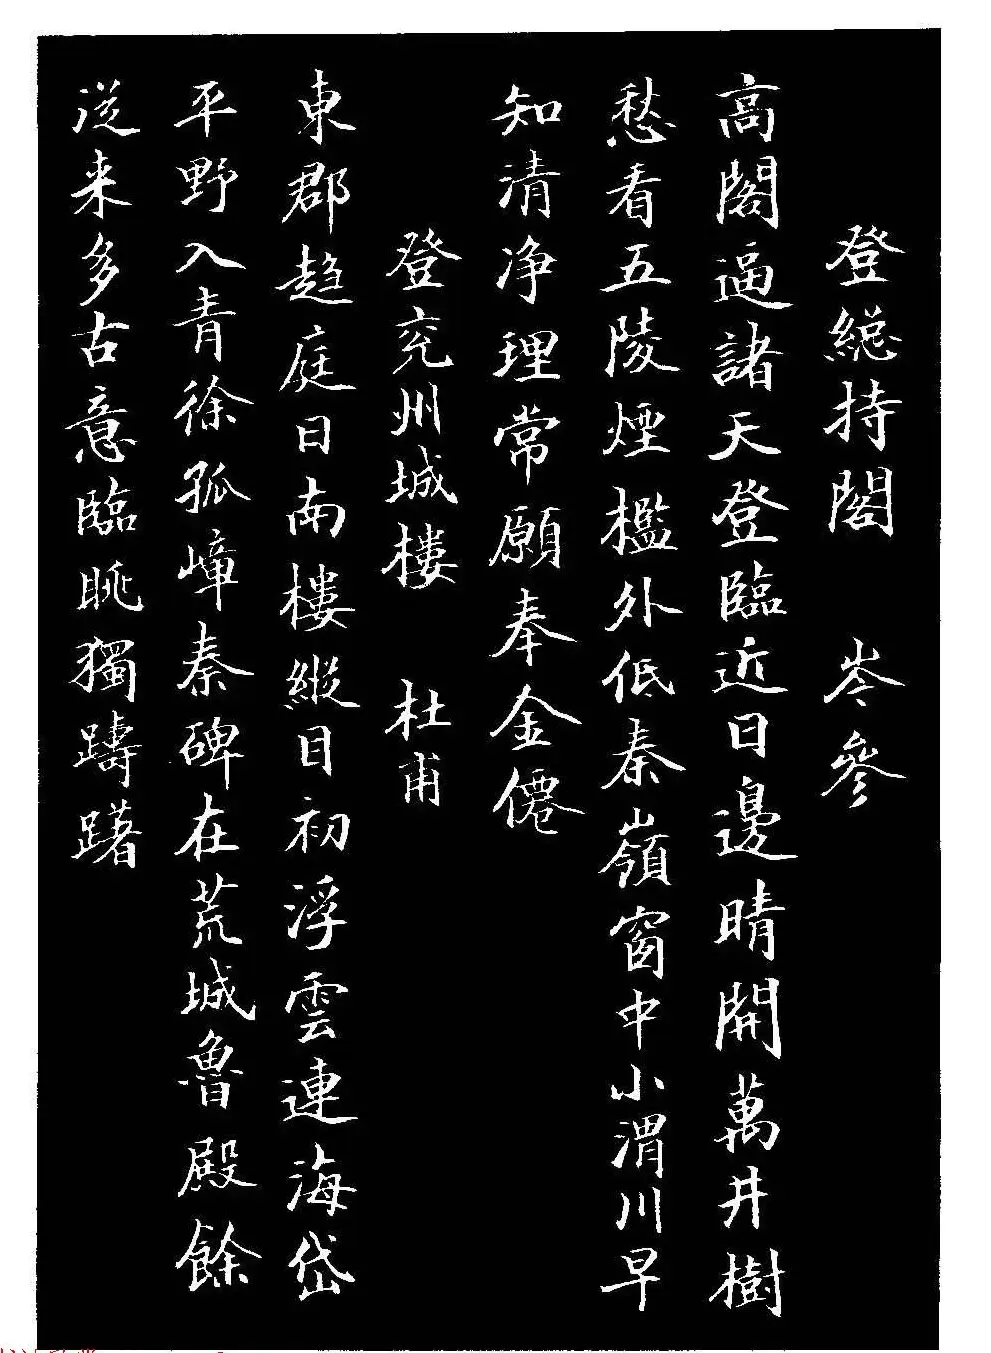 登總持閣 岑參
高閣逼諸天登臨近日邊晴開萬井樹
愁看五陵煙檻外低秦嶺窗中小渭川早
知清净理常願奉金僊
登兖州城樓 杜甫
東郡趋庭日南樓縱目初浮雲連海岱
平野入青徐孤嶂秦碑在荒城魯殿餘
從来多古意臨眺獨躊躇